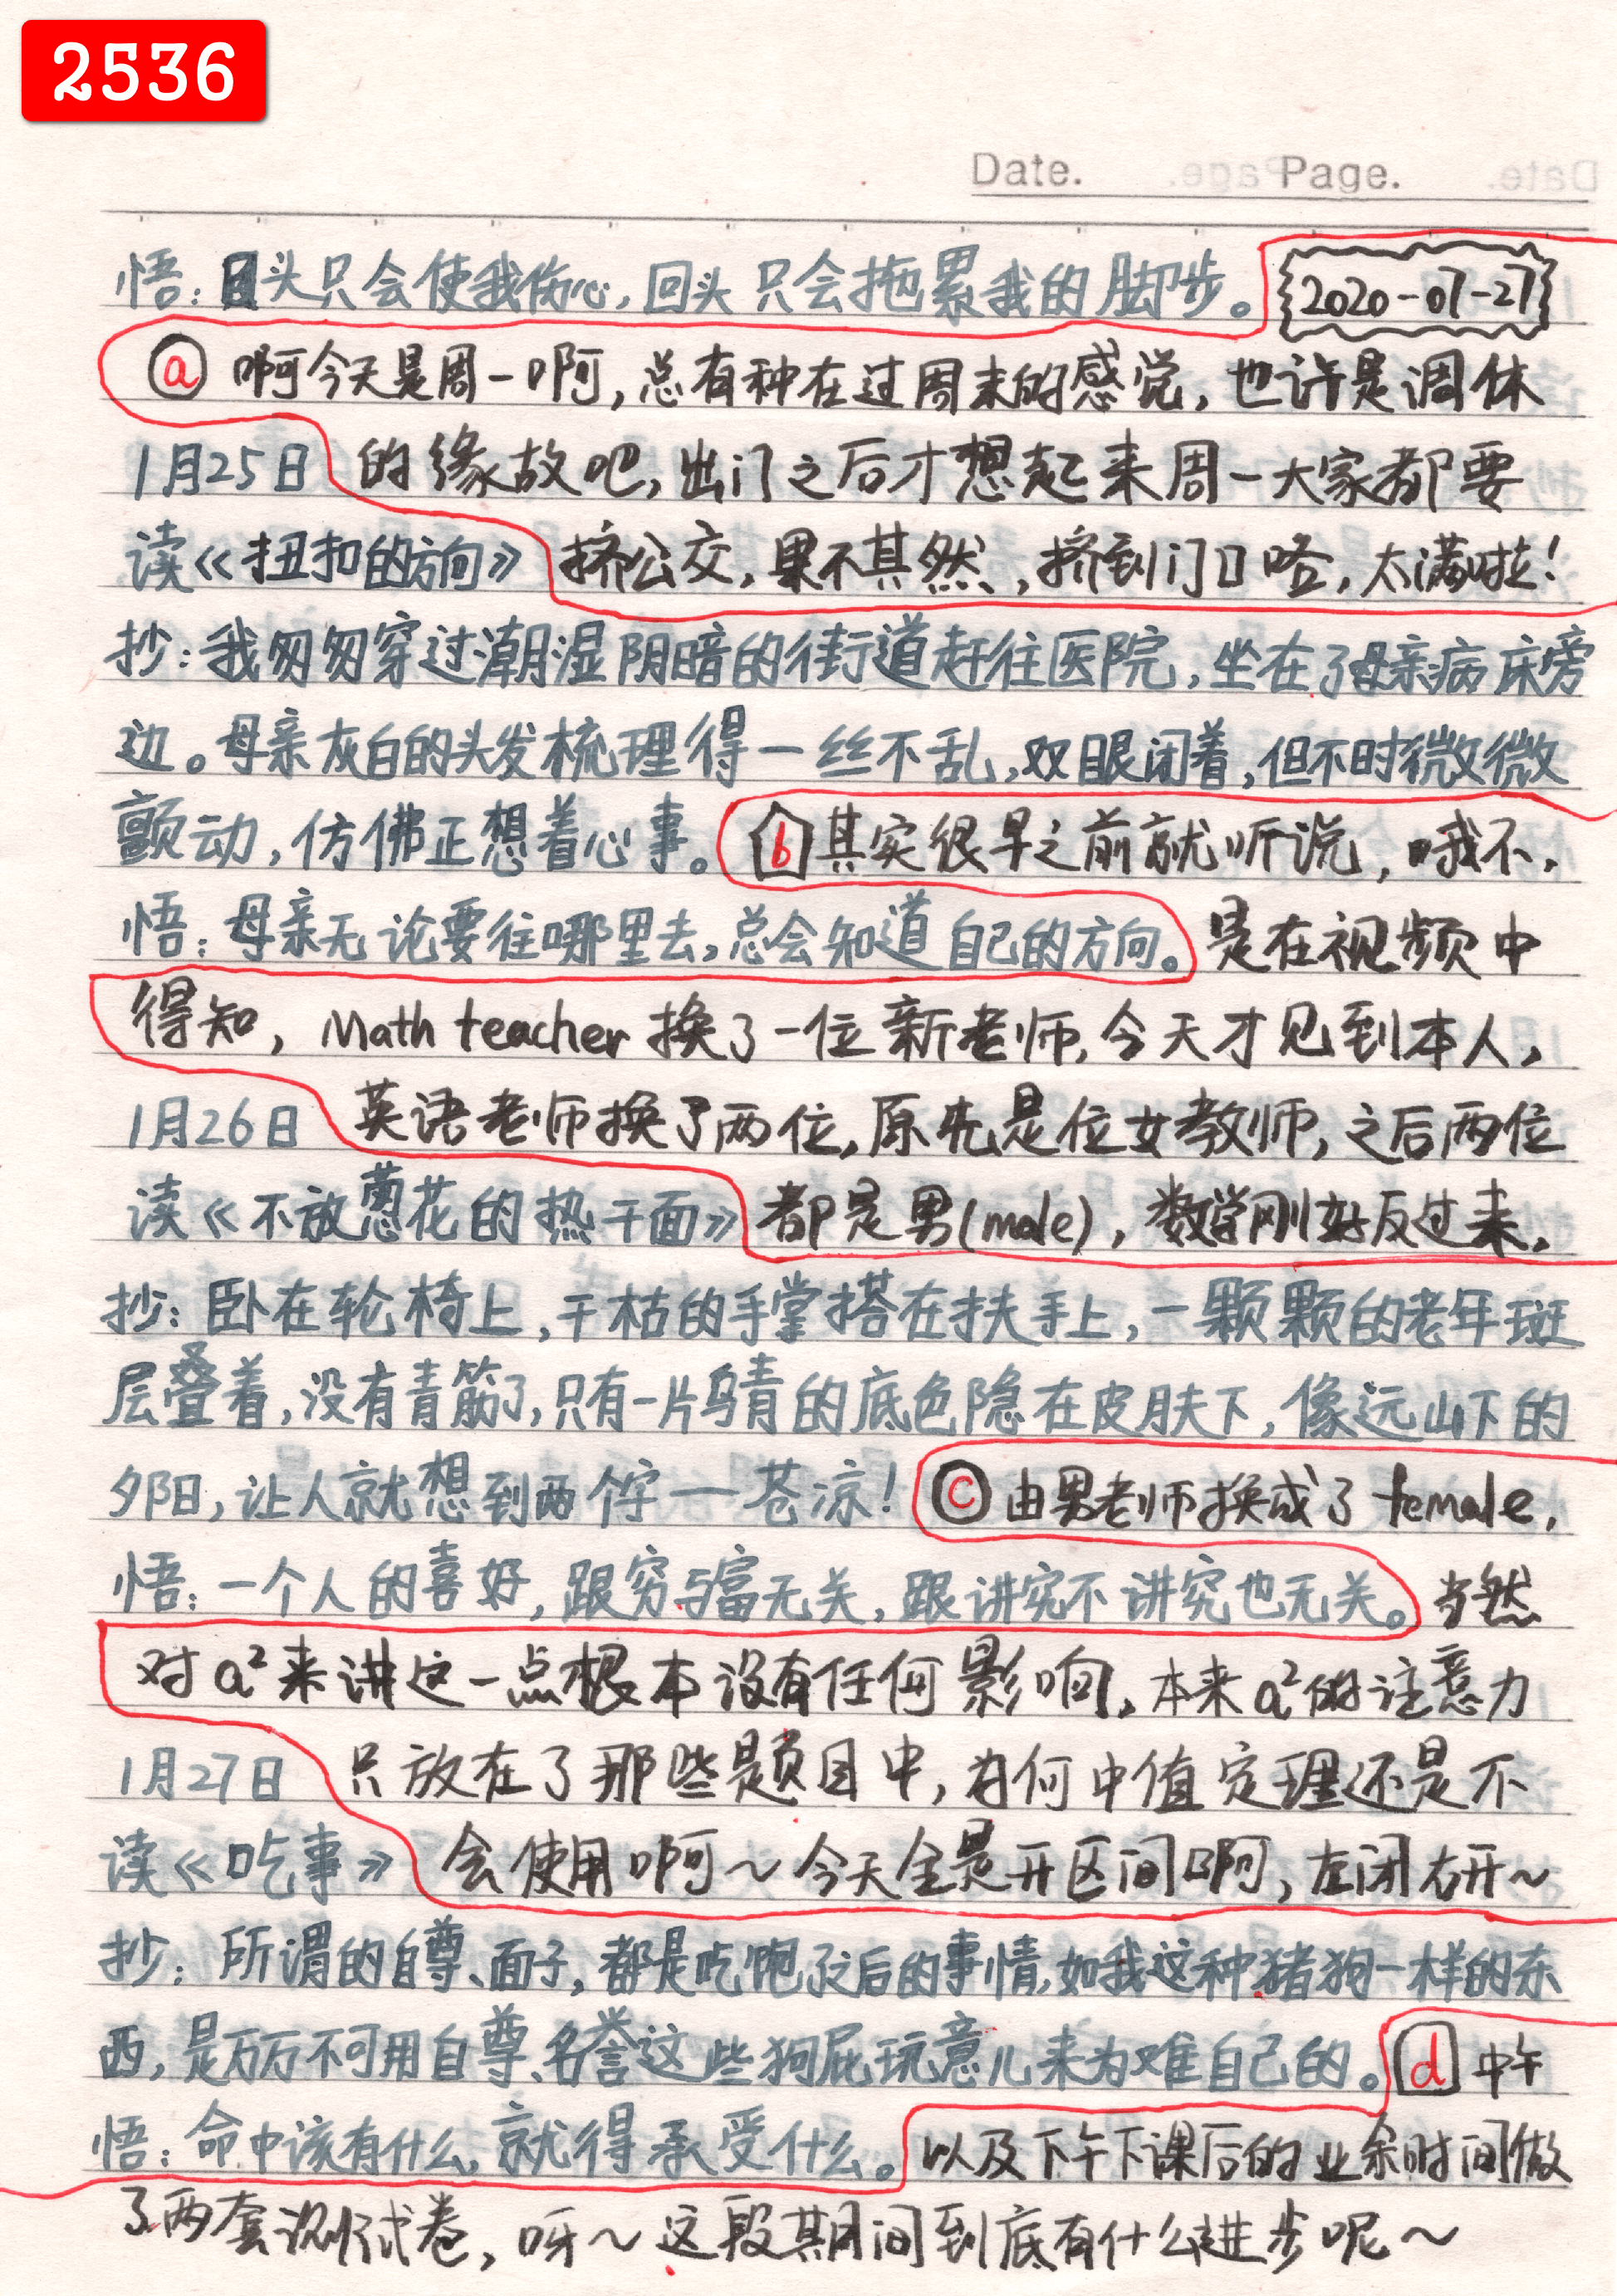 2536
Date. Page.
悟：回头只会使我伤心，回头只会拖累我的脚步。 2020-07-27
a 啊今天是周一啊，总有种在过周末的感觉，也许是调休
1月25日 的缘故吧，出门之后才想起来周一大家都要
读《扭扣的方向》 挤公交，果不其然，挤到门口咯，太满啦！
抄：我匆匆穿过潮湿阴暗的街道赶往医院，坐在了母亲病床旁
边。母亲灰白的头发梳理得一丝不乱，双眼闭着，但不时微微
颤动，仿佛正想着心事。 b 其实很早之前就听说，哦不，
悟：母亲无论要往哪里去，总会知道自己的方向。 是在视频中
得知，Math teacher 换了一位新老师，今天才见到本人，
1月26日 英语老师换了两位，原先是位女教师，之后两位
读《不放葱花的热干面》 都是男(male)，数学刚好反过来，
抄：卧在轮椅上，干枯的手掌搭在扶手上，一颗颗的老年斑
层叠着，没有青筋了，只有一片乌青的底色隐在皮肤下，像远山下的
夕阳，让人就想到两个字——苍凉！ c 由男老师换成了 female，
悟：一个人的喜好，跟穷与富无关，跟讲究不讲究也无关。 当然
对a²来讲这一点根本没有任何影响，本来a²的注意力
1月27日 只放在了那些题目中，为何中值定理还是不
读《吃事》 会使用啊～今天全是开区间啊，左闭右开～
抄：所谓的自尊、面子，都是吃饱了之后的事情，如我这种猪狗一样的东
西，是万万不可用自尊、名誉这些狗屁玩意儿来为难自己的。 d 中午
悟：命中该有什么，就得承受什么。 以及下午下课后的业余时间做
了两套测试卷，呀～这段期间到底有什么进步呢～